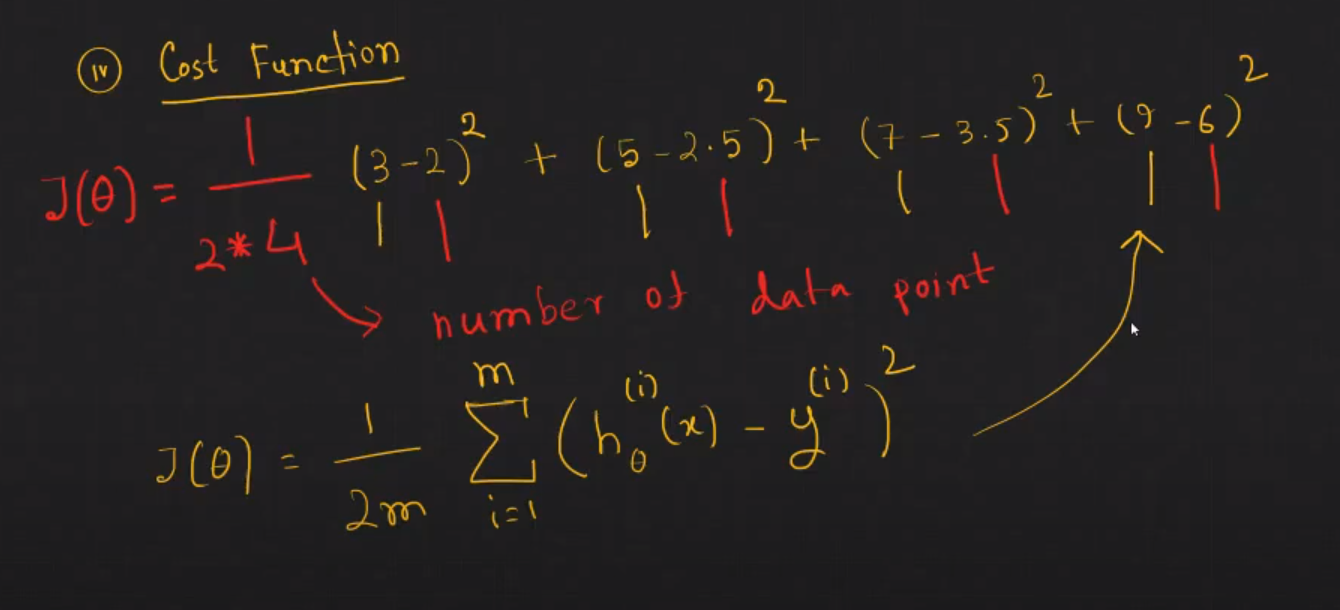 (iv) Cost Function
J(θ) = 1 / 2*4 (3-2)² + (5-2.5)² + (7-3.5)² + (9-6)²
number of data point
J(θ) = 1 / 2m Σ_{i=1}^{m} (h_θ^{(i)}(x) - y^{(i)})²